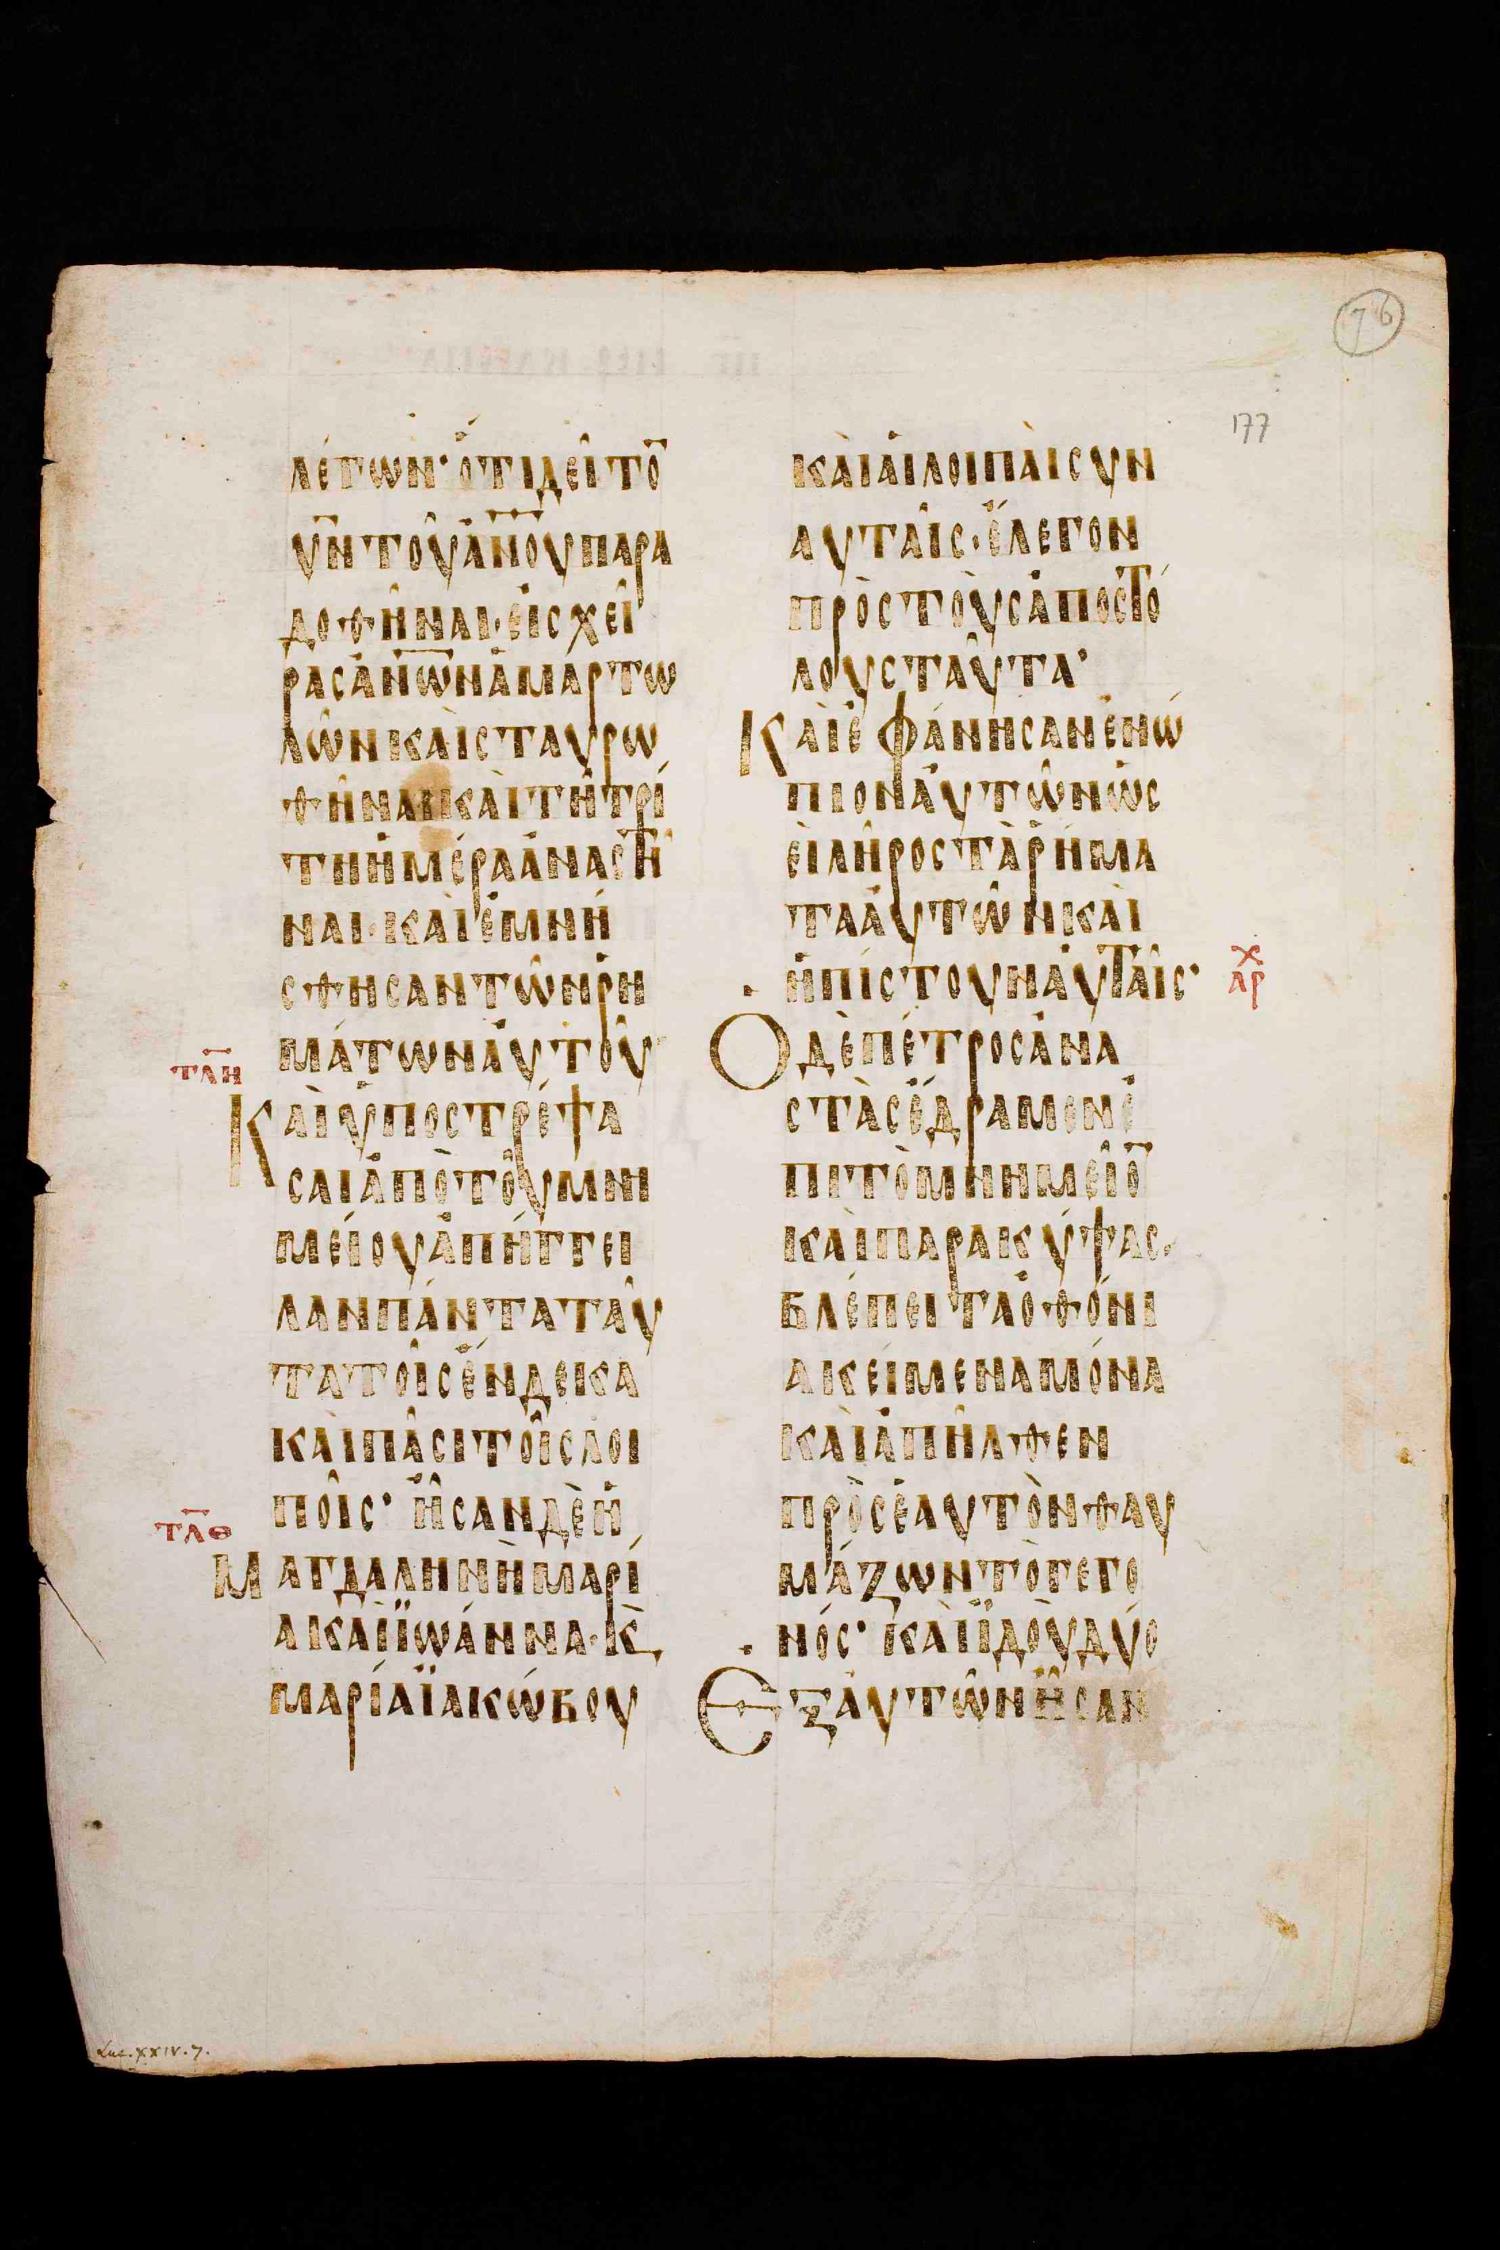 76
177
λέγων· ὅτι δεῖ το̅
υ̅ν̅ τοῦ α̅ν̅ο̅υ̅ παρα
δοθῆναι· εἰς χεῖ
ρας ἀν̅ω̅ν ἁμαρτω
λῶν καὶ σταυρω
θῆναι καὶ τῆ τρί
τη ἡμέρα ἀναστῆ
ναι· καὶ ἐμνή
σθησαν τῶν ῥη
μάτων αὐτοῦ
τλη
Καὶ ὑποστρέψα
σαι ἀπὸ τοῦ μνη
μείου ἀπήγγει
λαν πάντα ταῦ
τα τοῖς ἕνδεκα
καὶ πᾶσι τοῖς λοι
ποῖς· ἦσαν δὲ ἡ
τλθ
Μαγδαληνὴ μαρί
α καὶ ϊωάννα· κ̀
μαρία ϊακώβου
καὶ αἱ λοιπαὶ συν
αυταῖς· ἔλεγον
πρὸς τοὺς ἀποστό
λους ταῦτα·
Καὶ ἐφάνησαν ἐνώ
πιον αὐτῶν ὡς
εὶ λῆρος τὰ ῥήμα
τα αὐτῶν καὶ
ἠπίστουν αὐταῖς·
χ
αρ
Ὁ δὲ πέτρος ἀνα
στὰς ἔδραμεν ἐ
πι τὸ μνημεῖο̅
καὶ παρακύψας·
βλέπει τὰ ὀθόνι
α κείμενα μόνα
καὶ ἀπῆλθεν
πρὸς ἑαυτὸν θαυ
μάζων τὸ γεγο
νός· καὶ ϊδοὺ δύο
Ἐξ αὐτῶν ἦσαν
Luc. XXIV. 7.